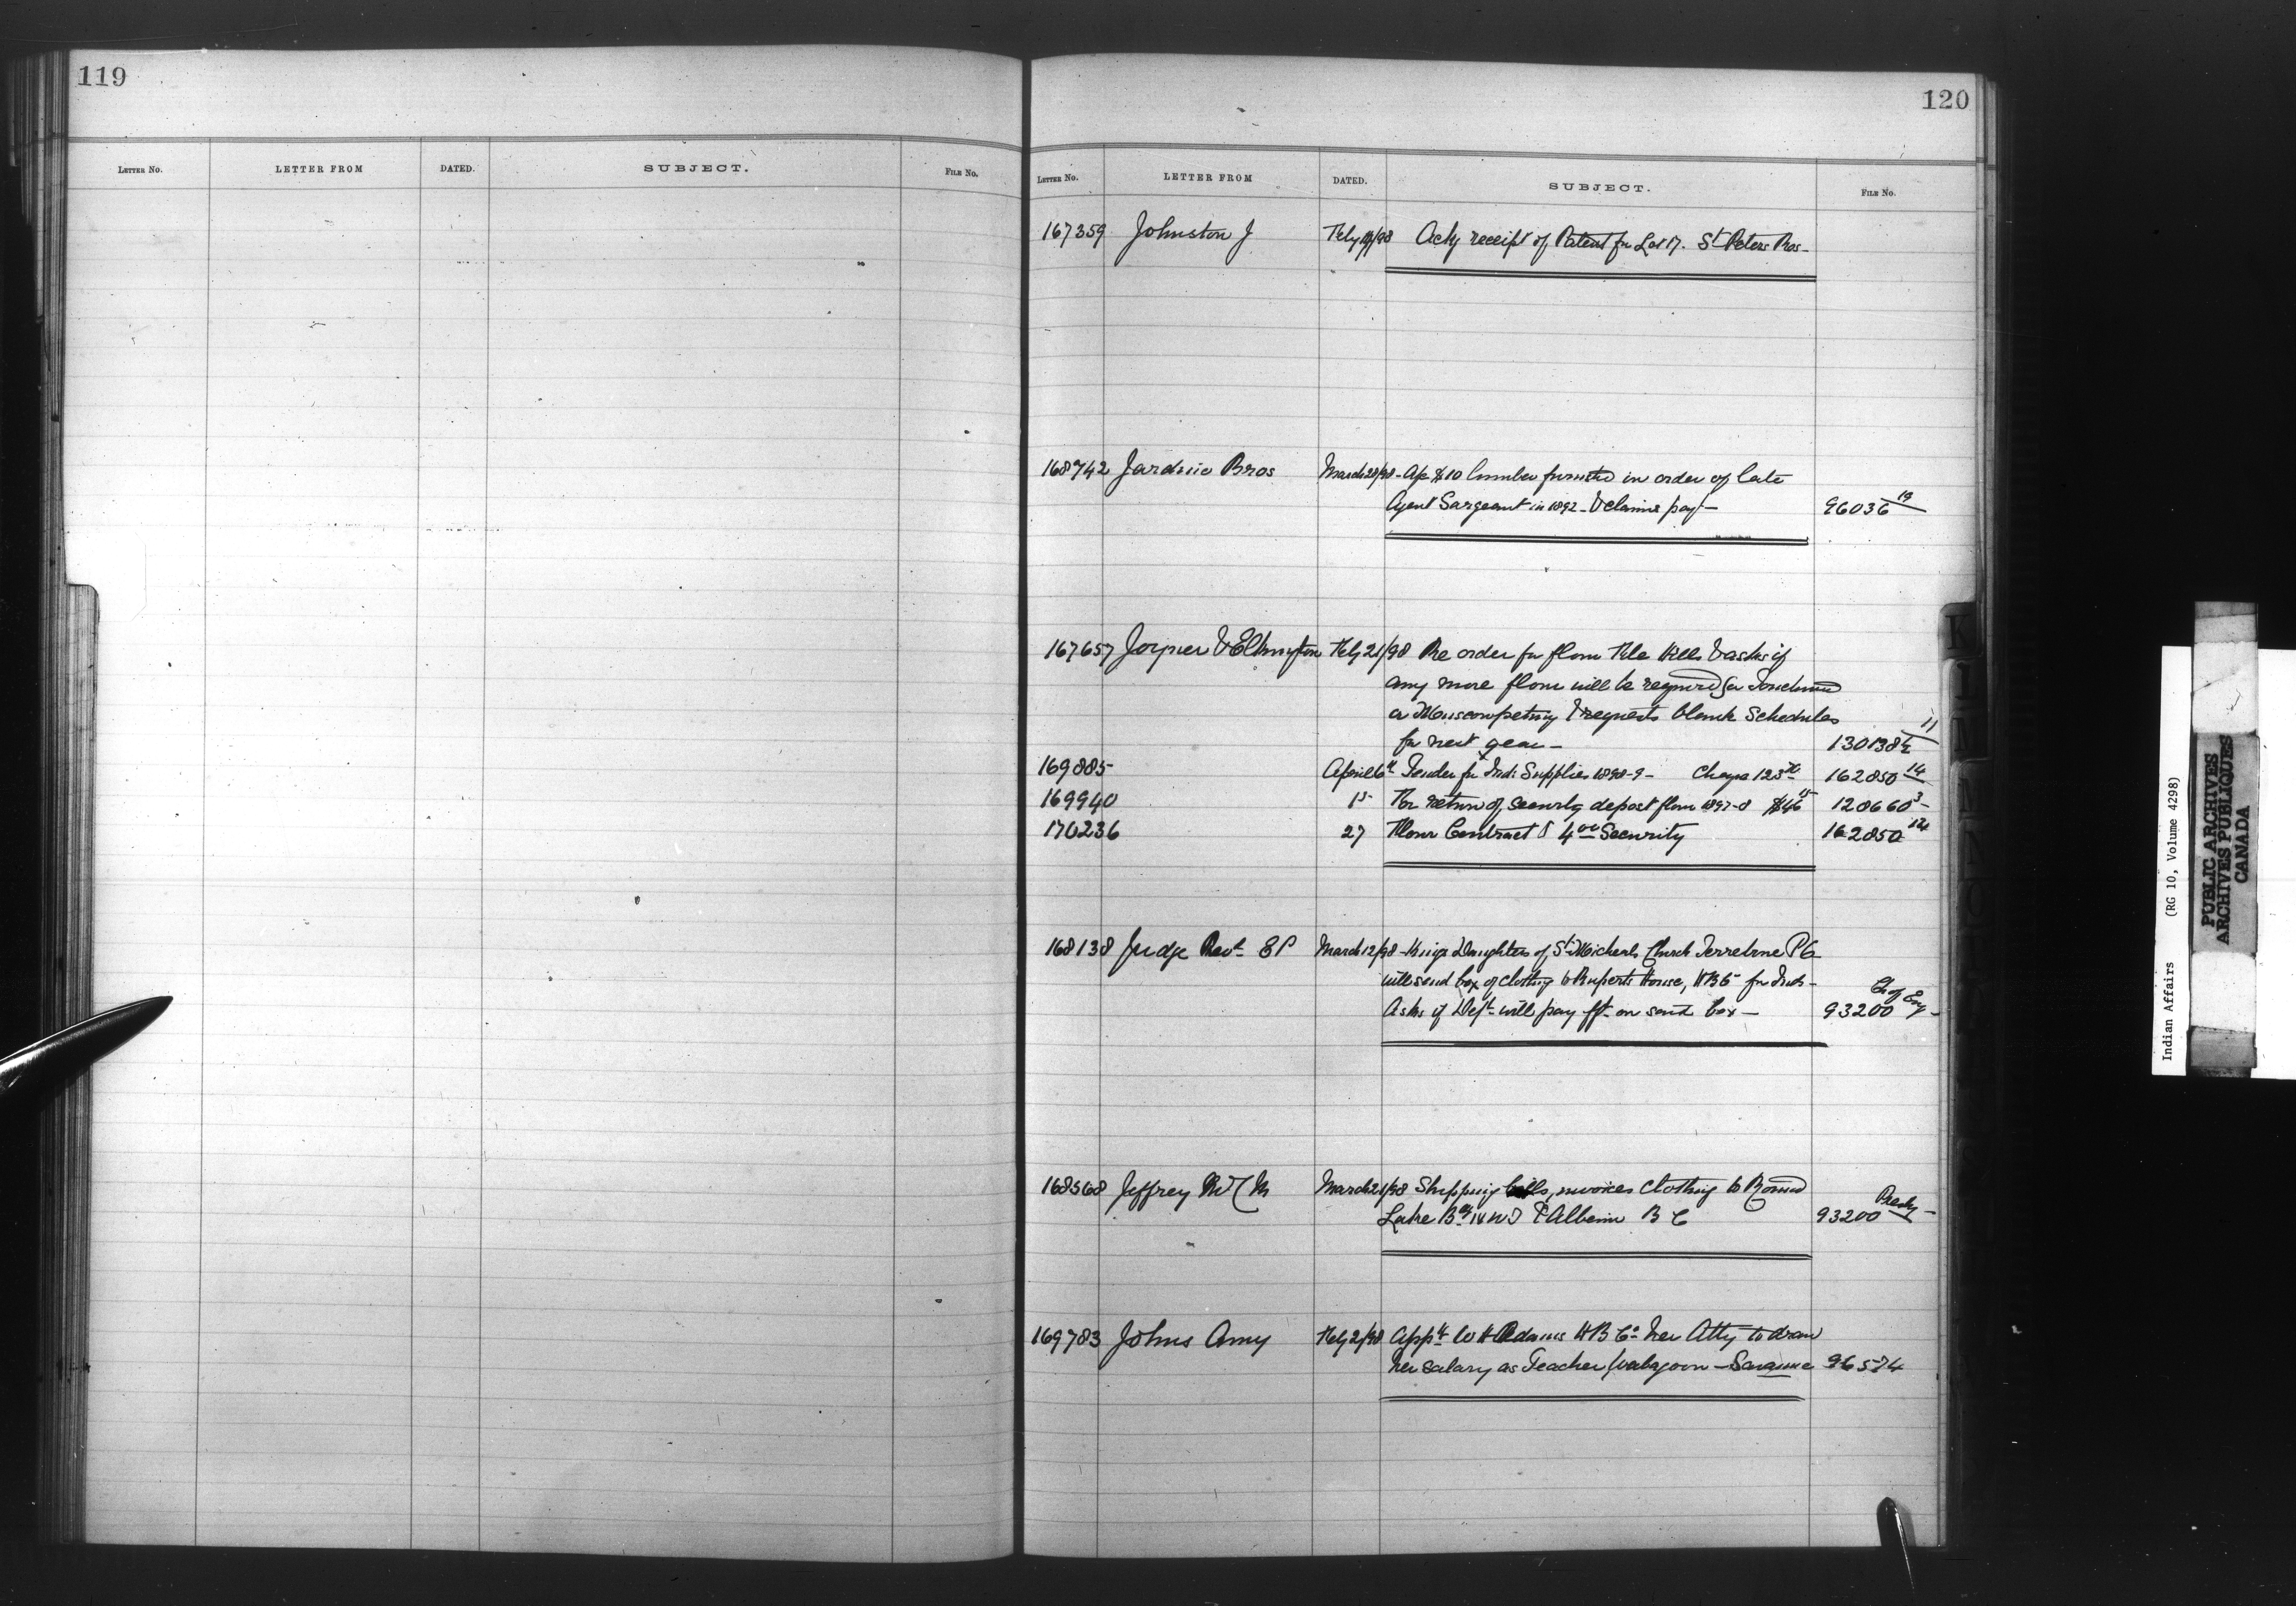 119
LETTER NO. LETTER FROM DATED. SUBJECT. FILE NO.
120
LETTER NO. LETTER FROM DATED. SUBJECT. FILE NO.
167359 Johnston J Feby /98 Ackg receipt of Patent for Lot 17. St Peters Res-
168742 Jardine Bros March 28/98 - $10 lumber in order of late
Agent Sargeant in 1892 - & claims pay - 96036 19
167657 Joyner & Elkington Feby 21/98 Re order for flour File Hills & asks if
any more flour will be required for Touchwood
or Muscowpetung & requests blank Schedules
for next year - 130138½ 11
169885 April 6th Tender for Ind: Supplies 1898-9 - 162850 14
169940 15 For return of security deposit flour 1897-8 $46 15 128660 3 -
170236 27 Flour Contract & 4 00 Security 162850 14
168138 Judge Revd EP March 12/98 - Kings Daughters of St Micheals Church Terrebone PQ
will send box of clothing to Ruperts House, HBC for Inds -
Asks if Dept will pay frt on said box - 93200 Ch of Eng -
168568 Jeffrey Mrs C M March 21/98 Shipping bills, invoices Clothing to Round
Lake Bdg NWT & Alberni B C 93200 Presby -
169783 Johns Amy Feby 2/98 Appts W H Adams H B Co her Atty to draw
her salary as Teacher Wabigoon - Savanne 96574
Indian Affairs (RG 10, Volume 4298)
PUBLIC ARCHIVES
ARCHIVES PUBLIQUES
CANADA